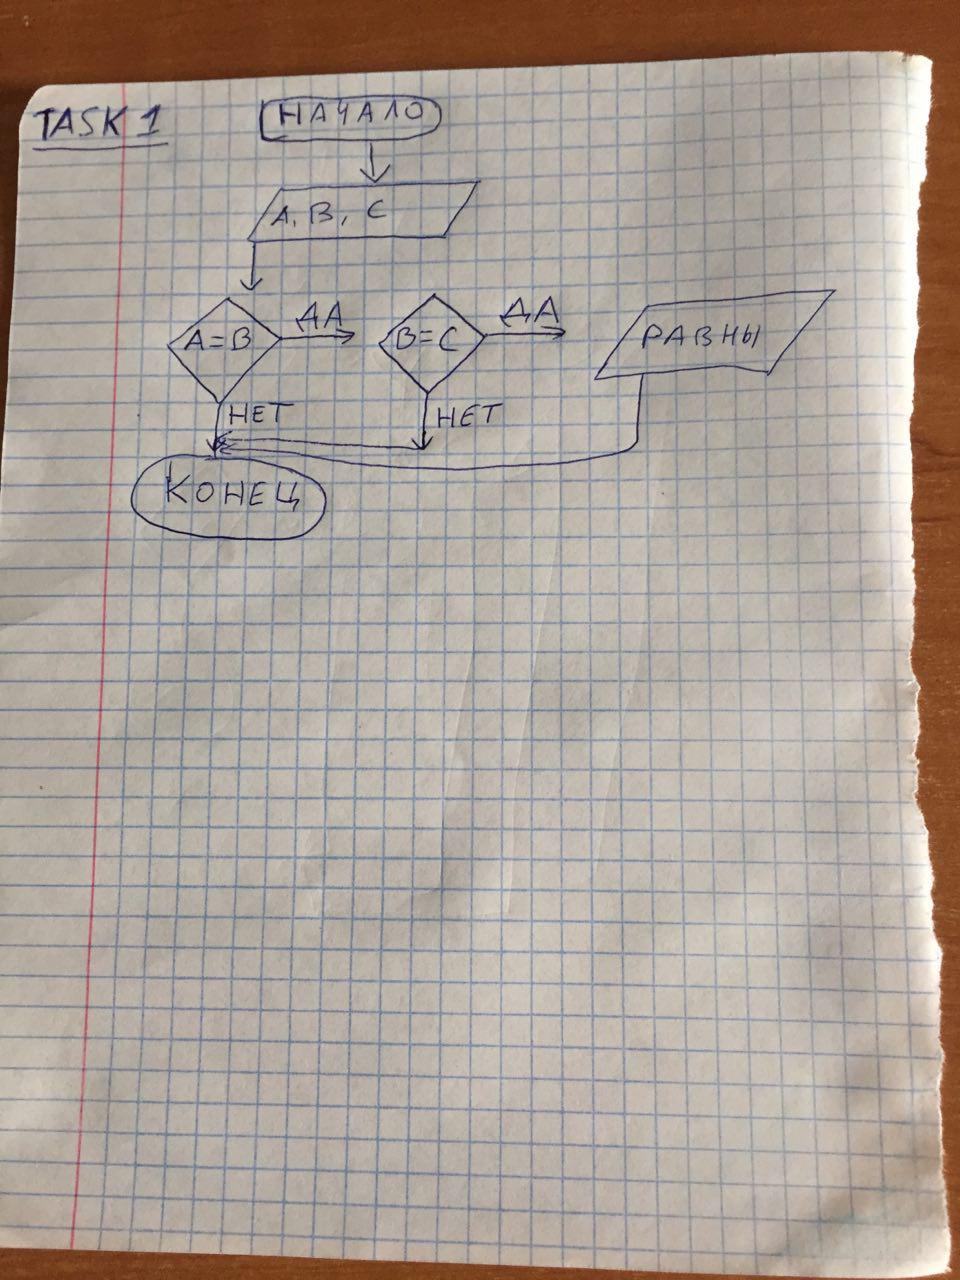 TASK 1
НАЧАЛО
A, B, C
A=B
ДА
B=C
ДА
РАВНЫ
НЕТ
НЕТ
КОНЕЦ